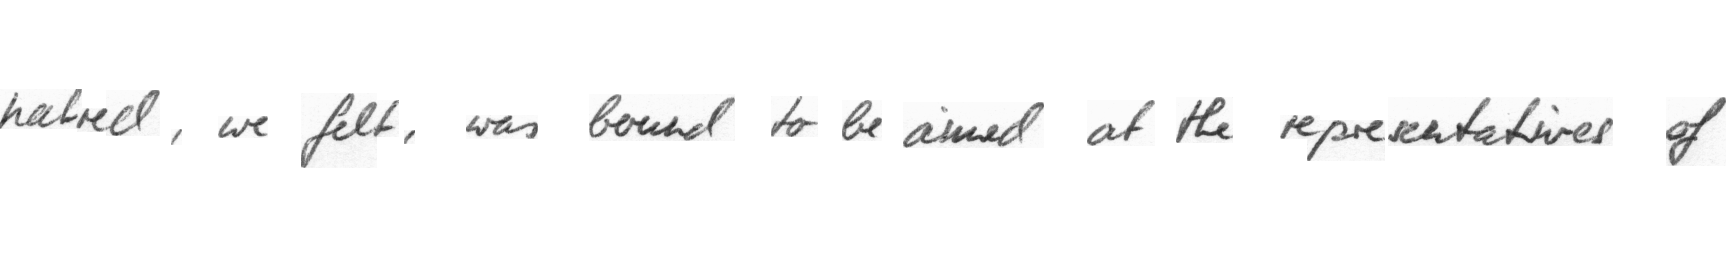 hatred, we felt, was bound to be aimed at the representatives of